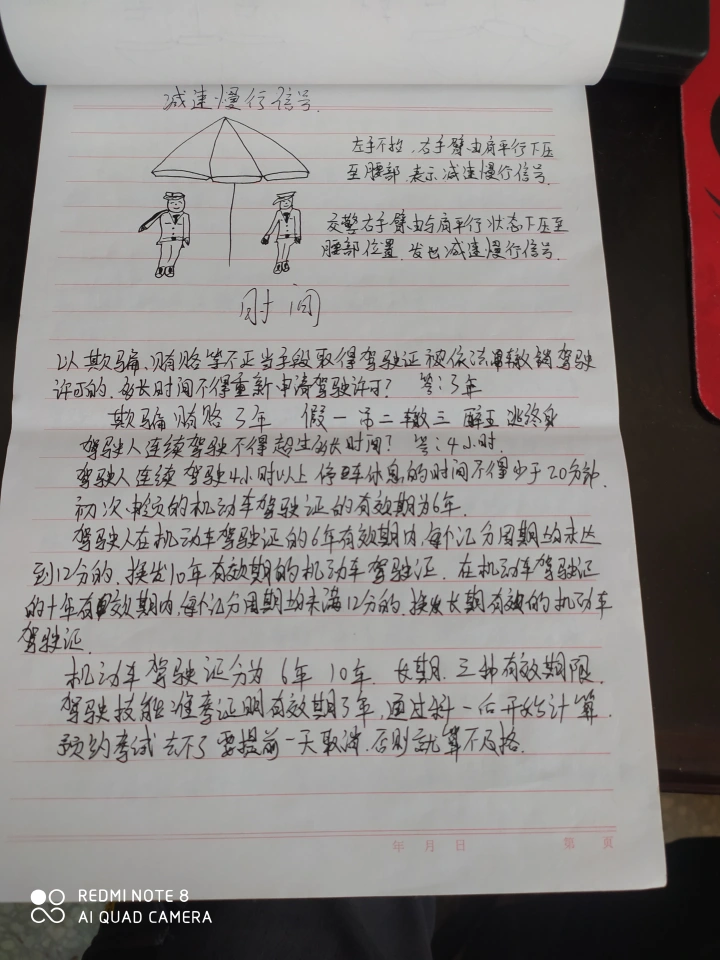 减速慢行信号.
左手不抬,右手臂由肩平行下压
至腰部,表示减速慢行信号.
交警右手臂由与肩平行状态下压至
腰部位置,发出减速慢行信号.
时间
以欺骗、贿赂等不正当手段取得驾驶证被依法吊撤销驾驶
许可的,多长时间不得重新申请驾驶许可? 答:3年
欺骗贿赂3年 假一吊二撤三 醉五逃终身
驾驶人连续驾驶不得超出多长时间? 答:4小时.
驾驶人连续驾驶4小时以上停车休息的时间不得少于20分钟.
初次申领的机动车驾驶证的有效期为6年.
驾驶人在机动车驾驶证的6年有效期内,每个记分周期均未达
到12分的,换发10年有效期的机动车驾驶证. 在机动车驾驶证
的十年有效期内,每个记分周期均未满12分的,换发长期有效的机动车
驾驶证.
机动车驾驶证分为6年 10年. 长期. 三种有效期限.
驾驶技能准考证明有效期3年,通过科一后开始计算.
预约考试去不了要提前一天取消,否则就算不及格.
年 月 日
第 页
REDMI NOTE 8
AI QUAD CAMERA